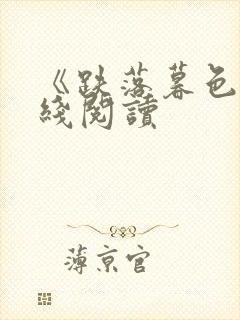 《跌落暮色
綫閱讀
薄京官